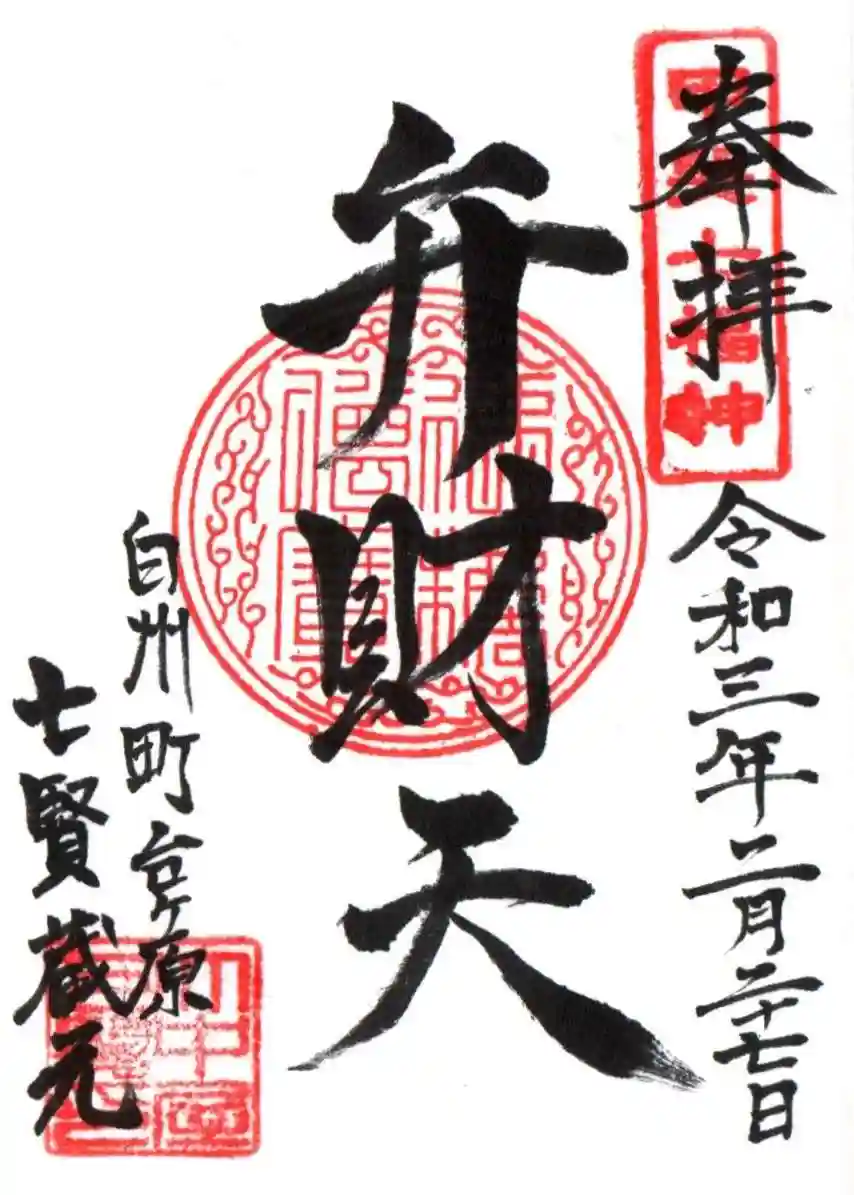 奉拝
令和三年二月二十七日
弁財天
白州町台ケ原
七賢蔵元